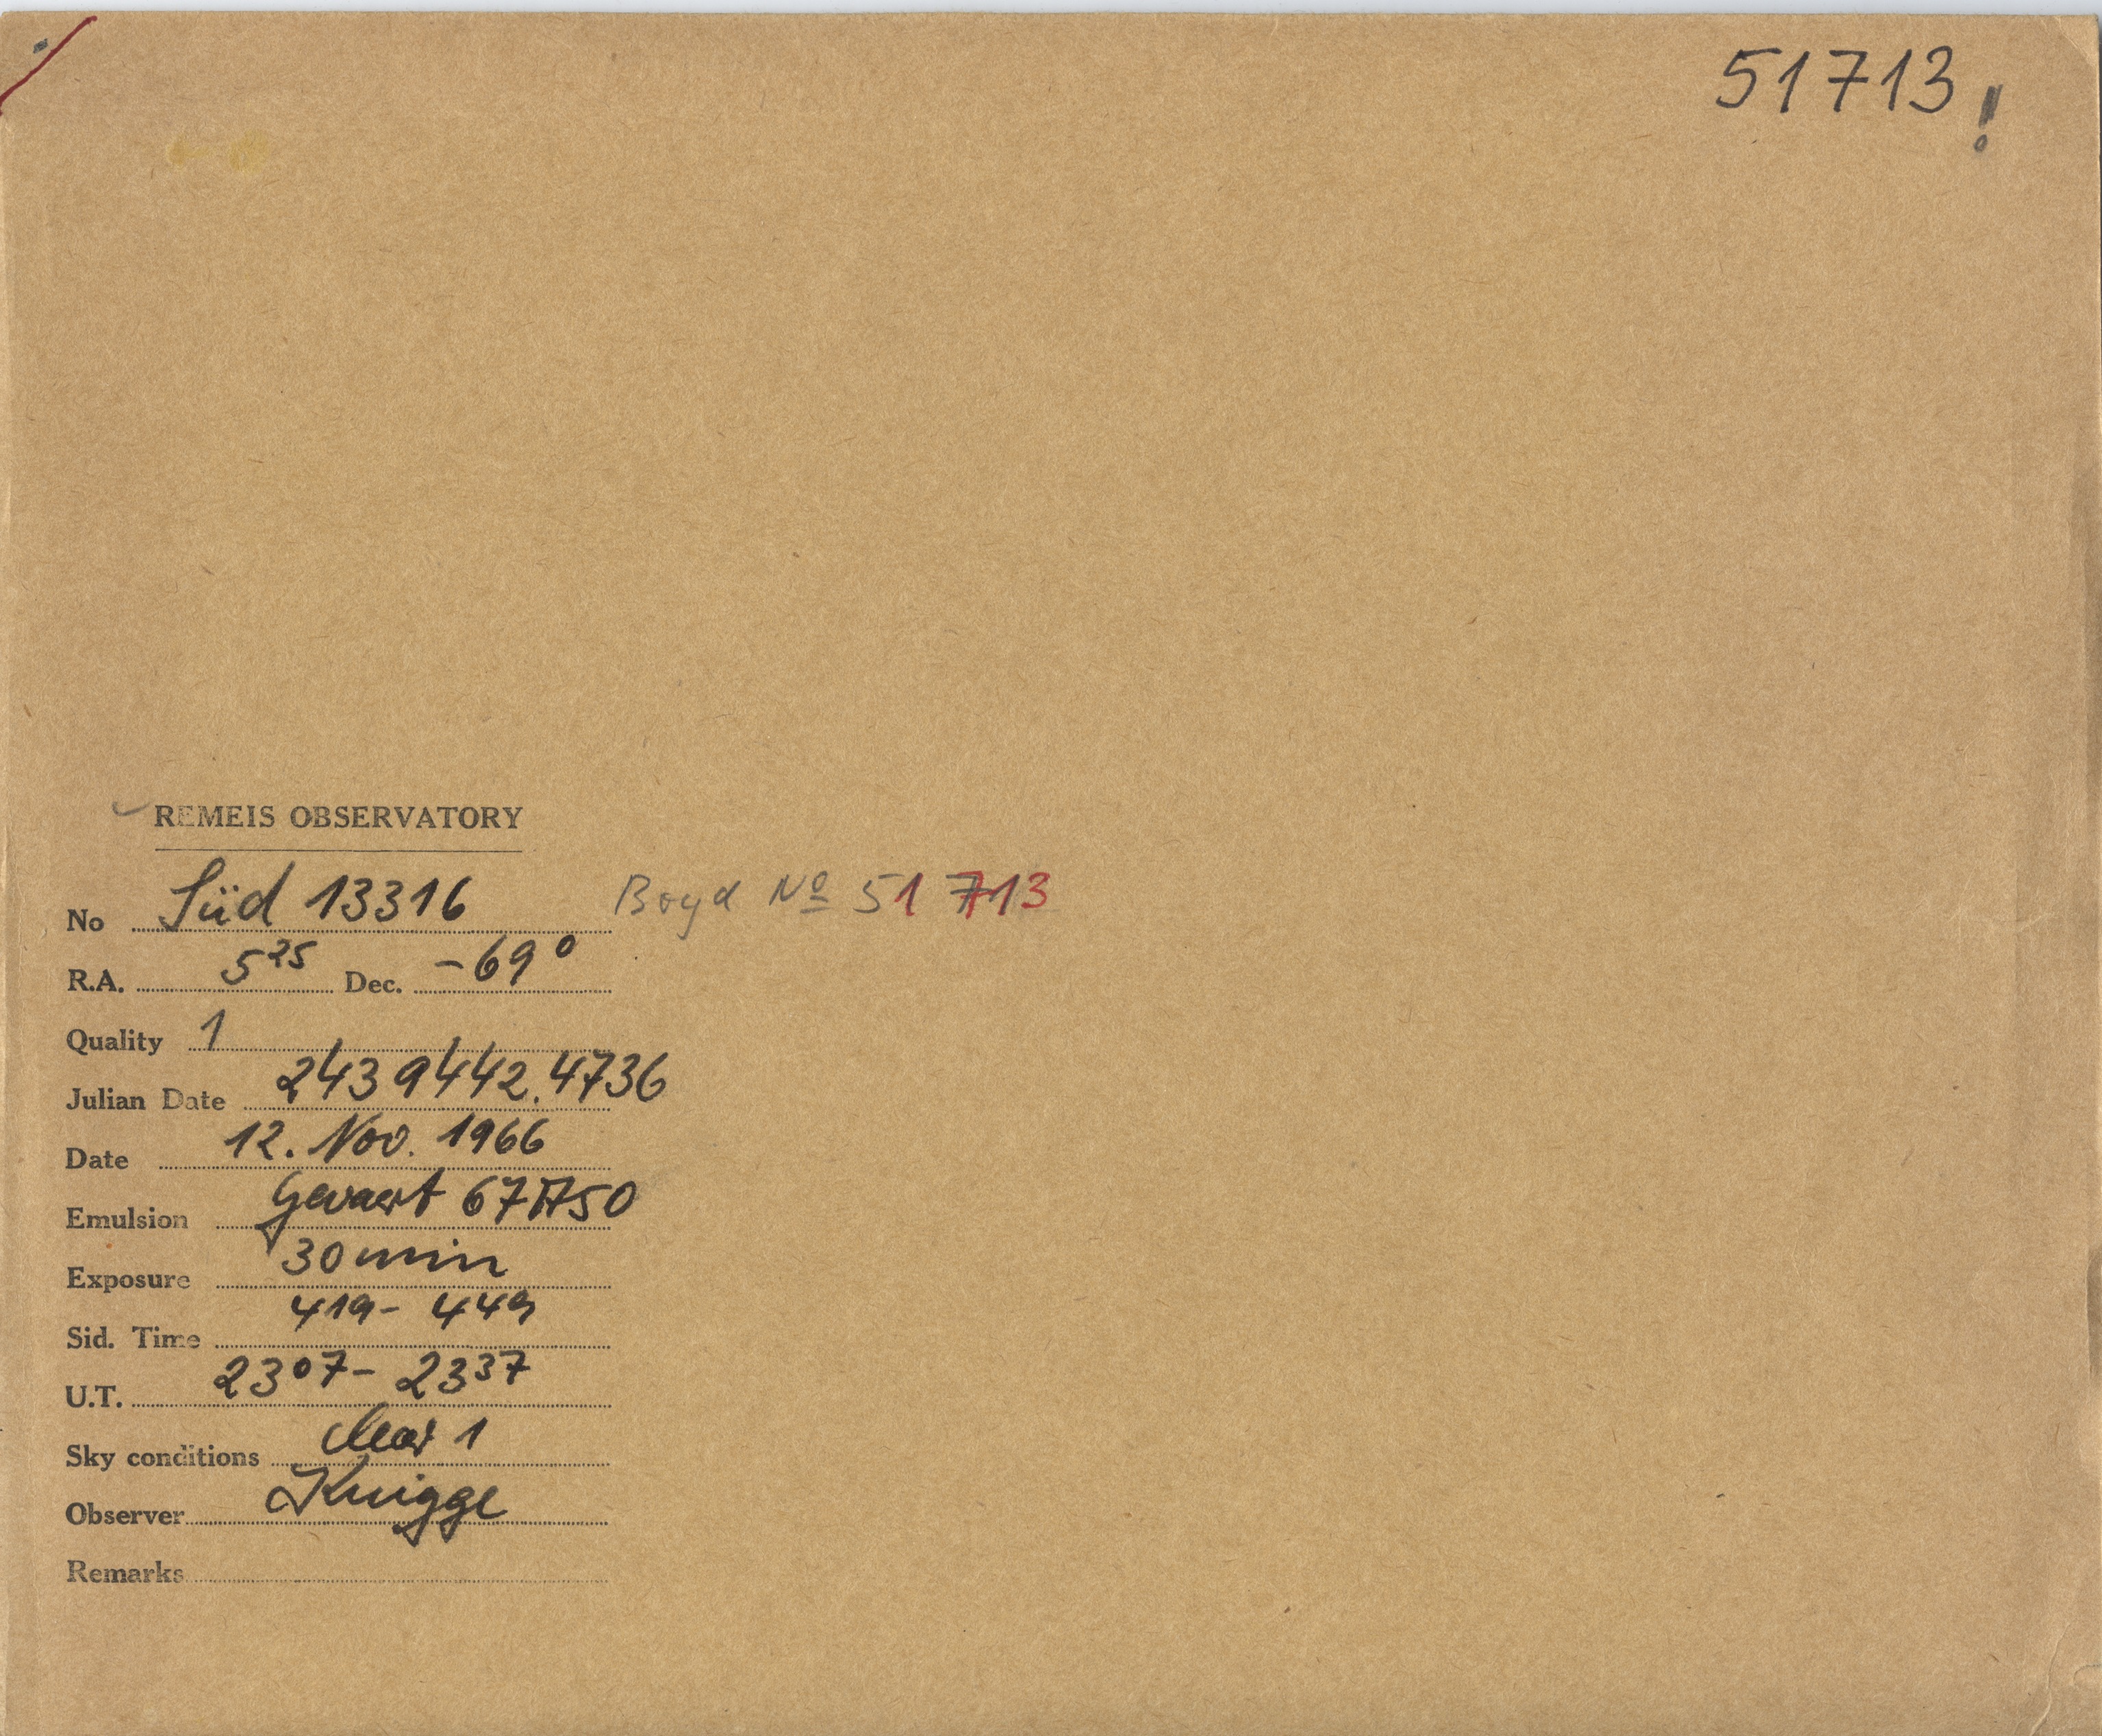 51713!
REMEIS OBSERVATORY
No Süd 13316 Boyd Nº 51 713
R.A. 5 25 Dec. -69°
Quality 1
Julian Date 2439442.4736
Date 12. Nov. 1966
Emulsion Gevaert 67A50
Exposure 30 min
Sid. Time 4 19 - 4 49
U.T. 23 07 - 23 37
Sky conditions clear 1
Observer Knigge
Remarks